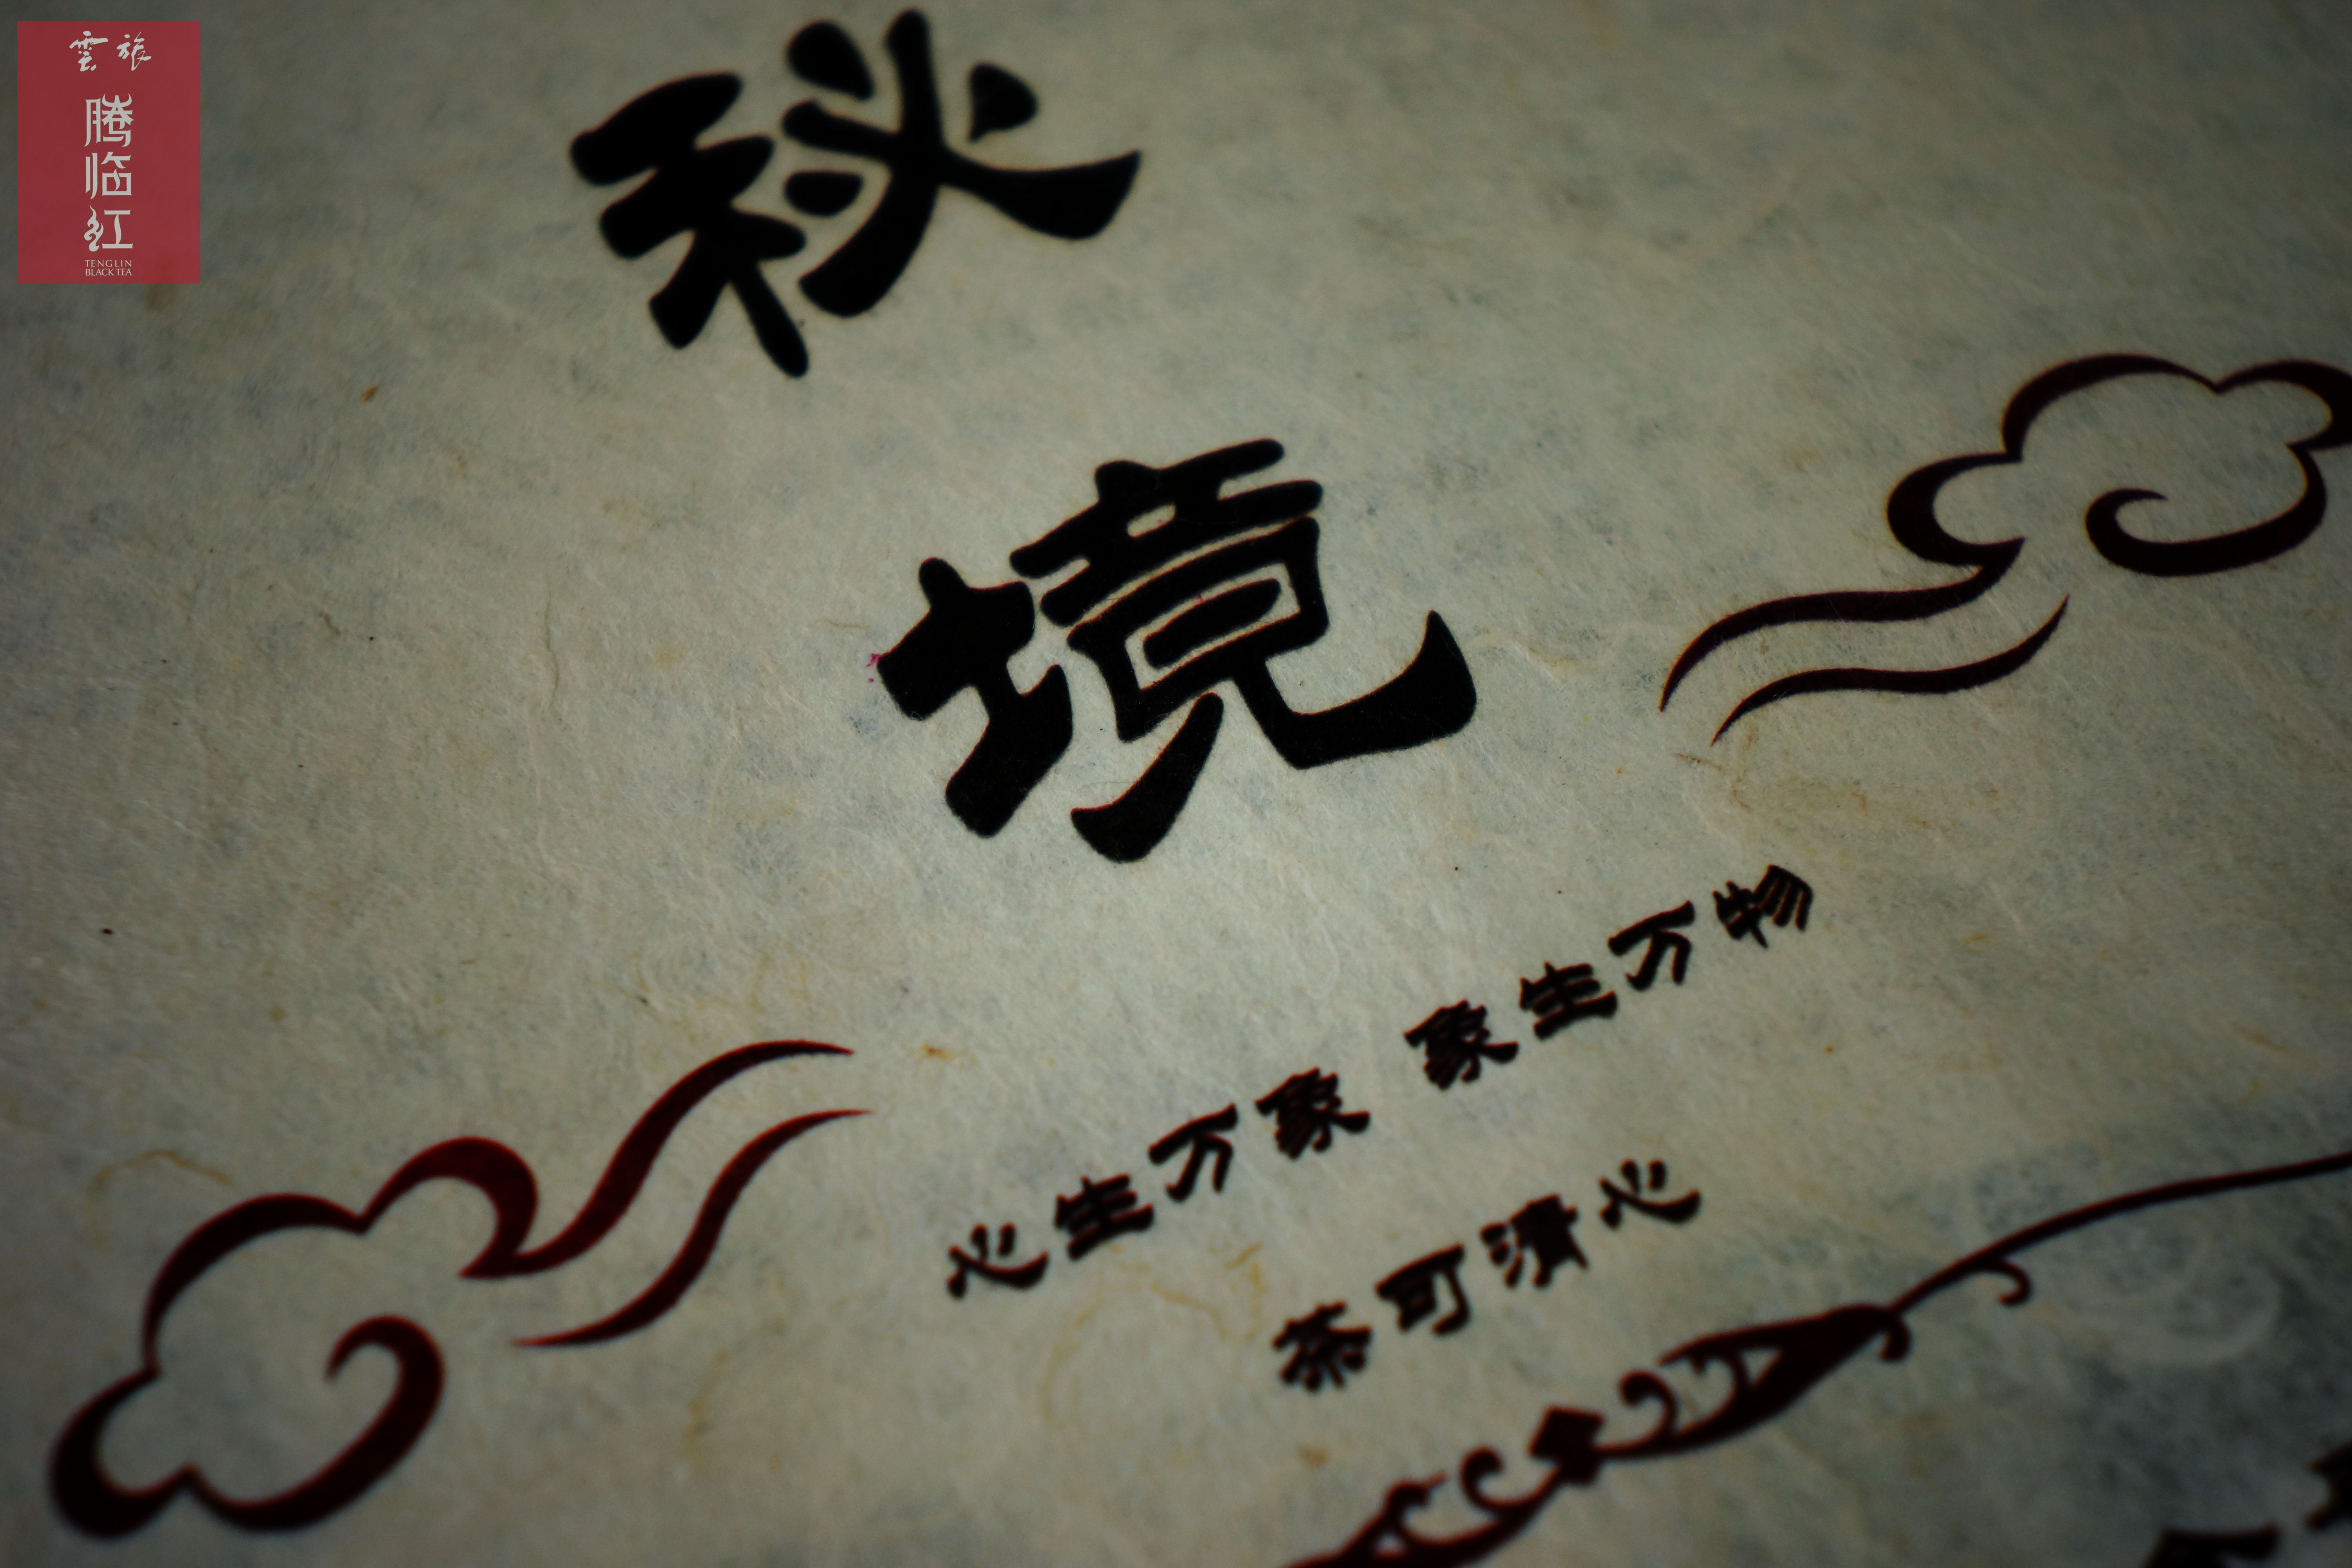 雲旅
腾临红
TENGLIN
BLACK TEA
秘
境
心生万象 象生万物
茶可清心